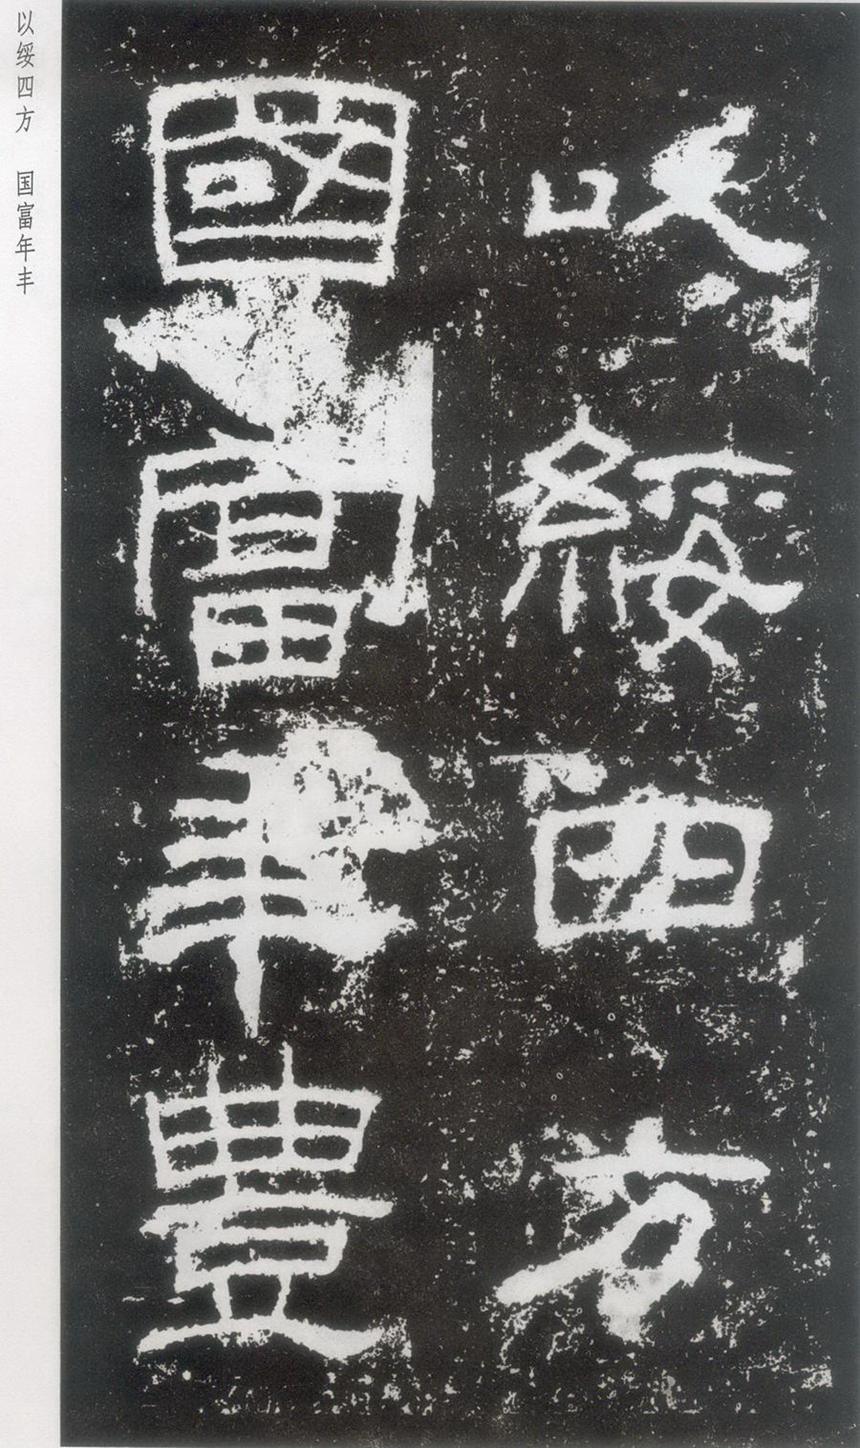 以绥四方 国富年丰
以綏四方
國富年豐